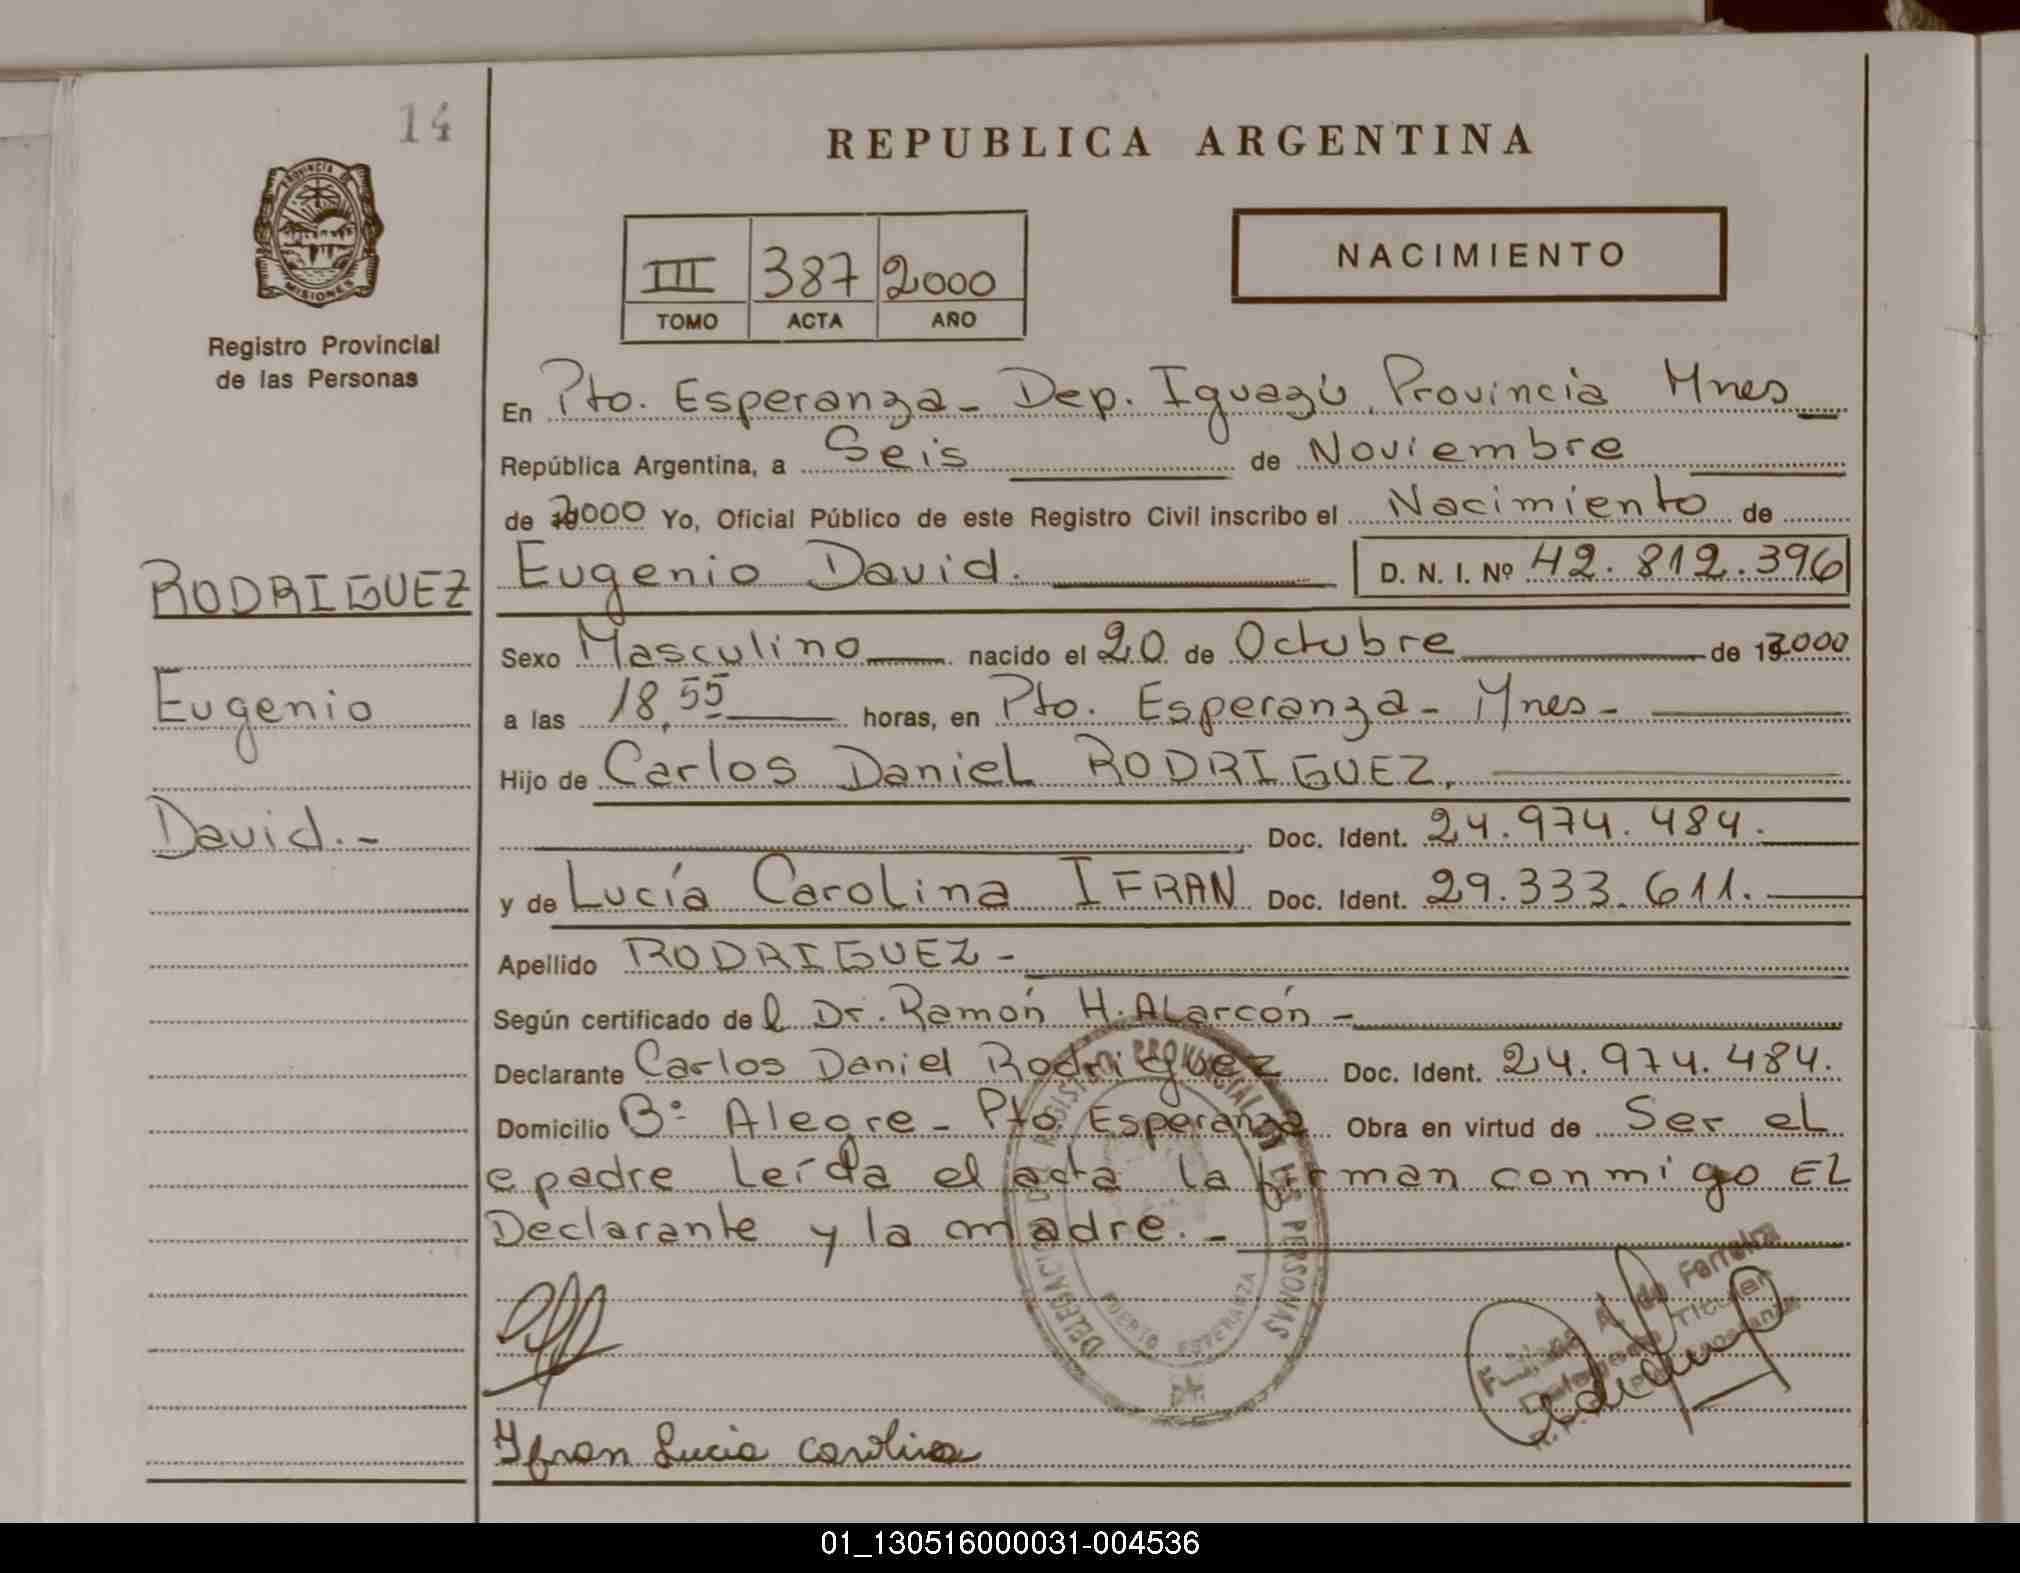 14
REPUBLICA ARGENTINA
PROVINCIA DE
MISIONES
Registro Provincial
de las Personas
III 387 2000
TOMO ACTA AÑO
NACIMIENTO
En Pto. Esperanza - Dep. Iguazú, Provincia Mnes
República Argentina, a Seis de Noviembre
de 2000 Yo, Oficial Público de este Registro Civil inscribo el Nacimiento de
RODRIGUEZ
Eugenio
David.-
Eugenio David. D. N. I. Nº 42.812.396
Sexo Masculino nacido el 20 de Octubre de 2000
a las 18,55 horas, en Pto. Esperanza - Mnes -
Hijo de Carlos Daniel RODRIGUEZ,
Doc. Ident. 24.974.484.
y de Lucía Carolina IFRAN Doc. Ident. 29.333.611.
Apellido RODRIGUEZ -
Según certificado del Dr. Ramón H. ALarcón -
Declarante Carlos Daniel Rodriguez Doc. Ident. 24.974.484.
Domicilio Bº Alegre - Pto. Esperanza Obra en virtud de Ser el
padre Leída el acta la firman conmigo EL
Declarante y la madre. -
DELEGACION REGISTRO PROVINCIAL DE LAS PERSONAS
PUERTO ESPERANZA
A. de Ferreira
Titular
Ifran Lucia Carolina
01_130516000031-004536